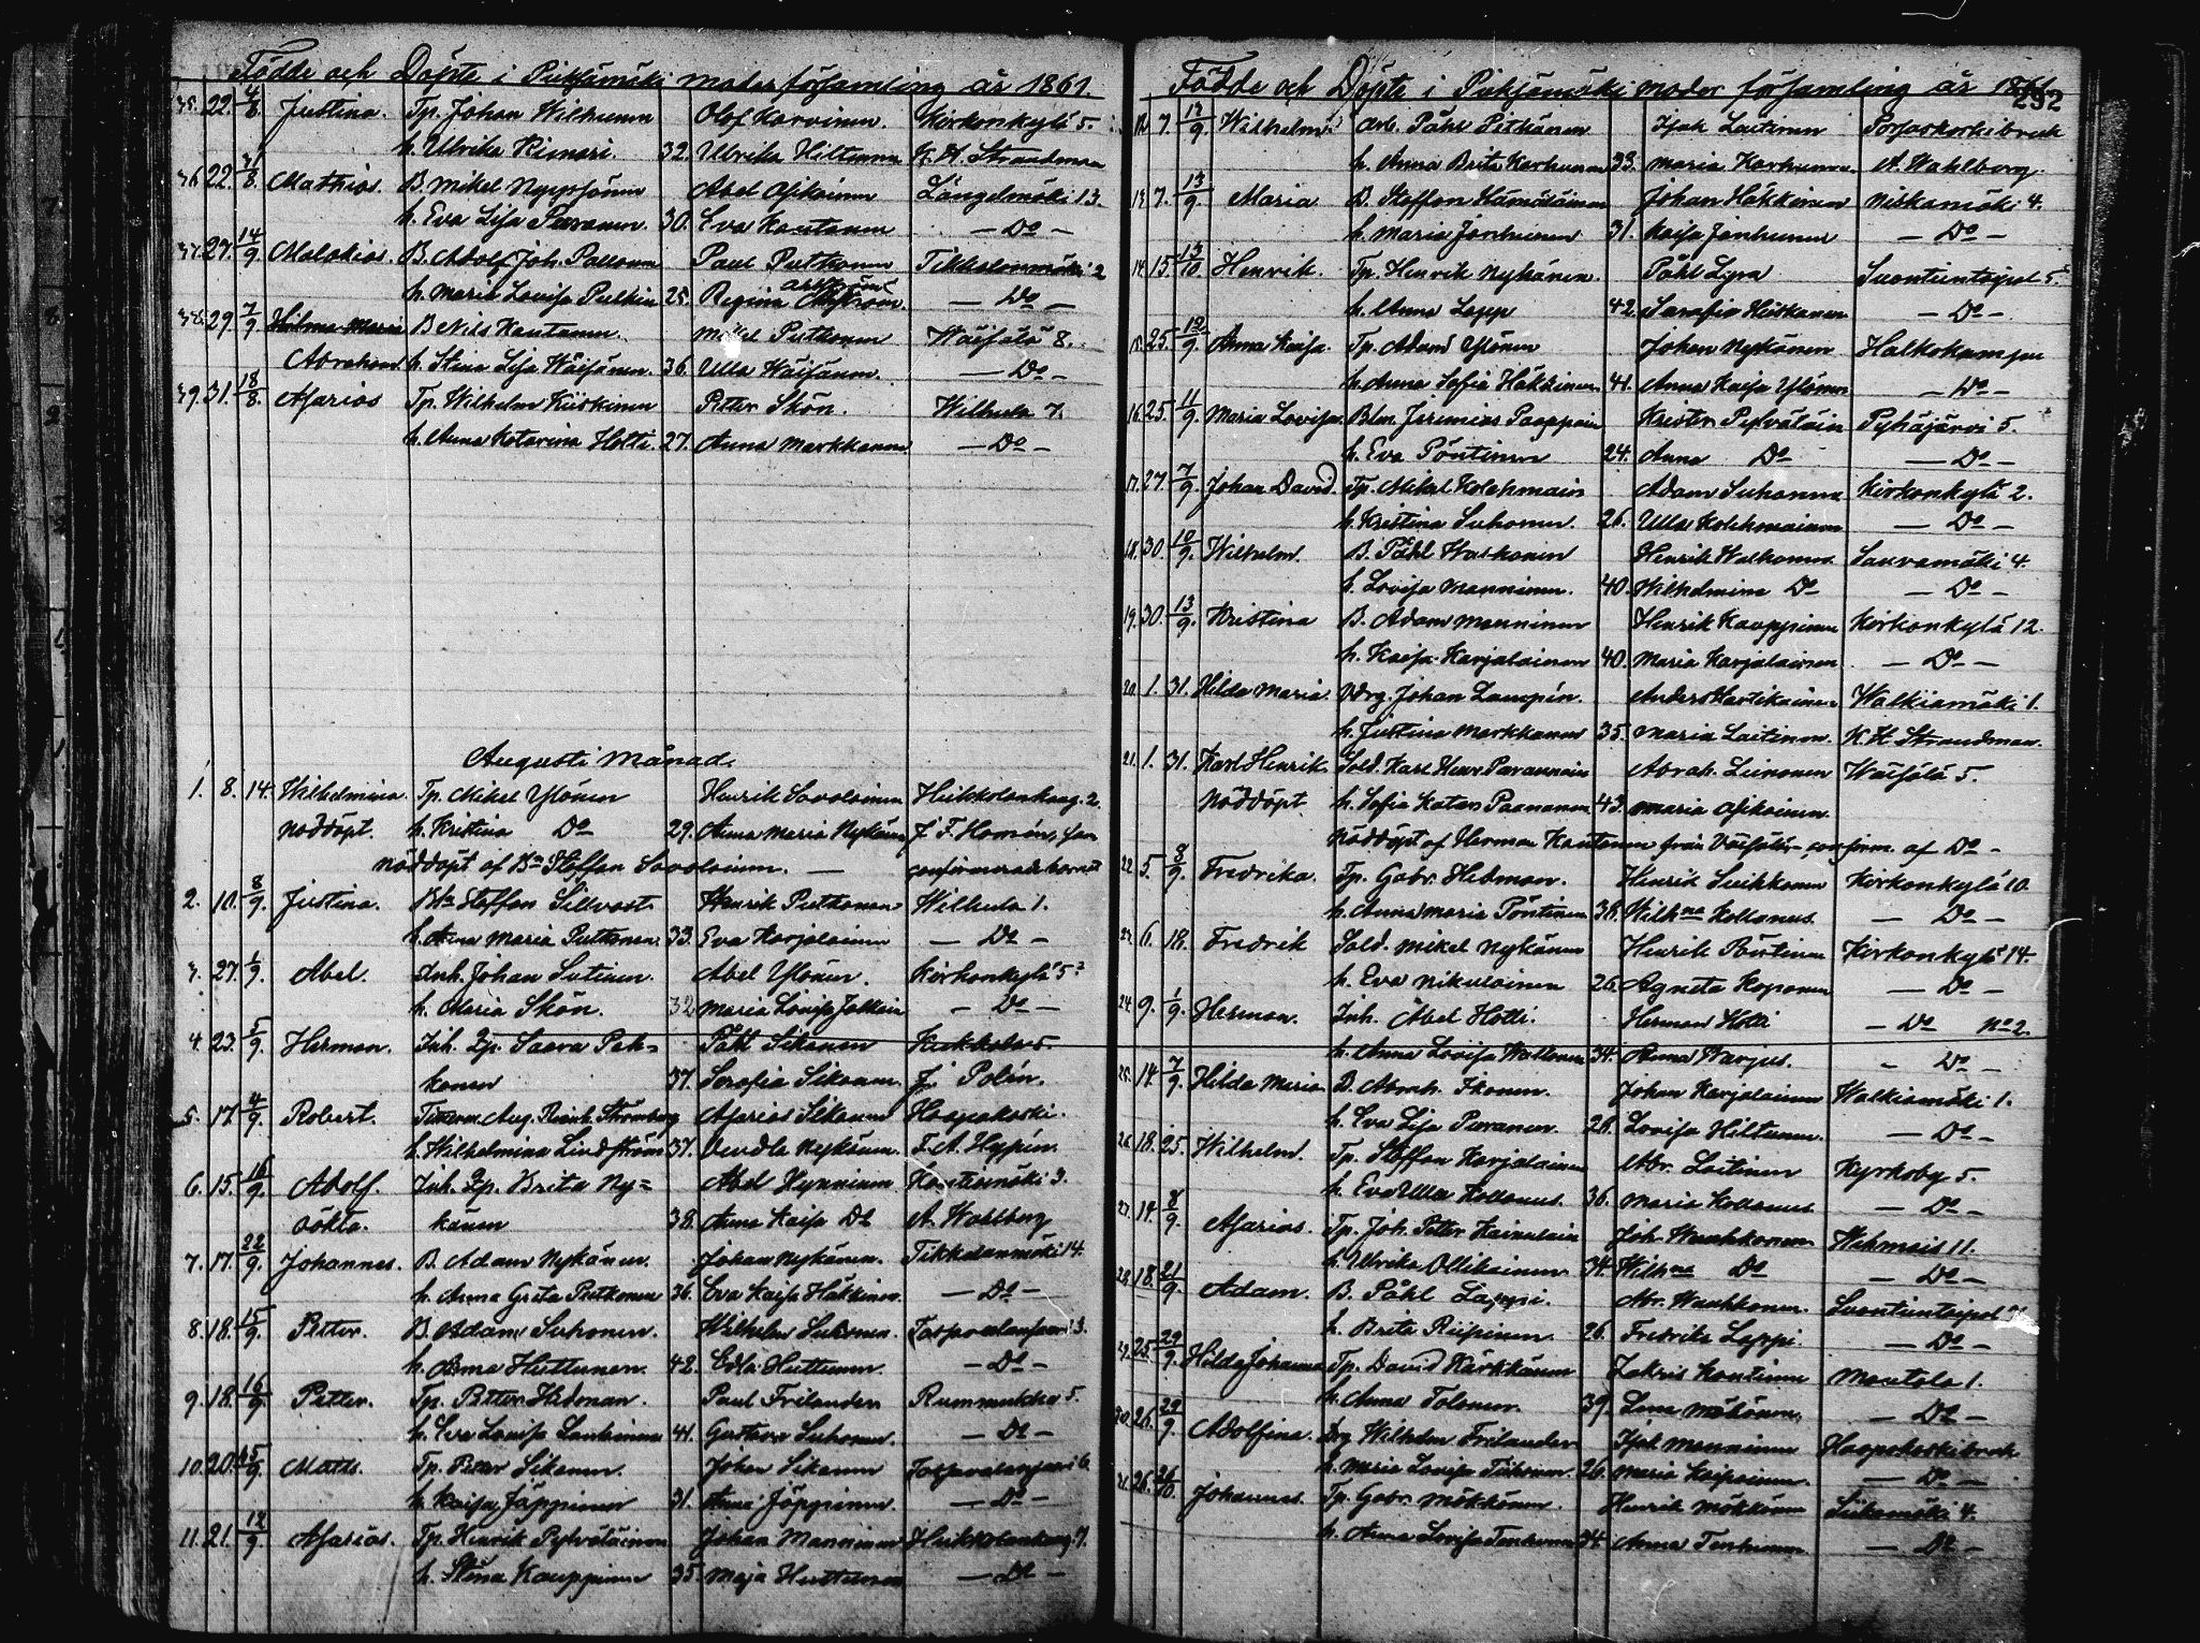 Födde och Döpte i Pieksämäki moderförsamling år 1861.
35. 22. 4/8. Justina. Tp. Johan Wilhunen Olof Karvinen. Kirkonkylä 5.
h. Ulrika Rimari. 32. Ulrika Hiltunen K. H. Strandman
36. 22. /8. Mathias. B. Mikel Nyyssönen Abel Asikainen Längelmäki 13.
h. Eva Lisa Puranen. 30. Eva Kautonen — Do —
37. 27. 14/9. Malakias. B. Adolf Joh. Pallonen Paul Puttonen Tikkalanmäki 2
h. Maria Lovisa Pulkin 25. Regina — Do —
38. 29. 7/9. Hilma Maria B Nils Kautonen. Mikel Puttonen Wäisälä 8.
h. Stina Lisa Wäisänen. 36. Ulla Wäisänen. — Do —
39. 31. 18/8. Asarias Tp. Wilhelm Kiiskinen Petter Skön. Wilhula 7.
h. Anna Katarina Holti. 27. Anna Markkanen — Do —
Augusti Månad.
1. 8. 14. Wilhelmina. Tp. Mikel Ylönen Henrik Savolainen Heikkolankang. 2.
Nöddöpt. h. Kristina Do 29. Anna Maria Nykänen J. F. Homén, som
Nöddöpt af Bn Staffan Savolainen. — confirmerade barnet
2. 10. 8/9. Justina. Bn Staffan Sillvast Henrik Puttonen Wilhula 1.
h. Anna Maria Puttonen. 33. Eva Karjalainen — Do —
3. 27. 1/9. Abel. Inh. Johan Sutinen. Abel Ylönen. Kirkonkylä 5
h. Maria Skön. 32 Maria Lovisa — Do —
4. 23. 5/9. Herman. Inh. Zp. Saara Pek= Påhl Sikanen Heikkola 5.
konen 37. Serafia Sikanen. J. Polén.
5. 17. 4/9. Robert. Aug. Reinh. Strömberg Asarias Sikanen Haapakoski.
h. Wilhelmina Lindström 37. Vendla Nykänen. F. A. Hyppén.
6. 15. 16/9. Adolf. Inh. Zp. Brita Ny= Abel Hynninen Kontiomäki 3.
oäkta. känen 38. Anna Kaisa Do A. Wahlberg
7. 17. 22/9. Johannes. B. Adam Nykänen. Johan Nykänen. Tikkalanmäki 14.
h. Anna Greta Puttonen 36. Eva Kaisa Häkkinen. — Do —
8. 18. 15/9. Petter. B. Adam Suhonen. Wilhelm Suhonen. 3.
h. Anna Huttunen. 42. Edla Huttunen. — Do —
9. 18. 16/9. Petter. Tp. Petter Hedman. Paul Frilander Rummukka 5.
h. Eva Lovisa Lankinen 41. Gustava Suhonen. — Do —
10. 20. 15/9. Matts. Tp. Petter Sikanen. Johan Sikanen 6.
h. Kaisa Jäppinen 31. Anna Jäppinen. — Do —
11. 21. 12/9. Asarias. Tp. Henrik Pylväläinen Johan Manninen Heikkolankang. 7.
h. Stina Kauppinen 35. Maja Huttunen — Do —
Födde och Döpte i Pieksämäki moder församling år 1861.
232
12. 7. 12/9. Wilhelm. Arb. Påhl Pitkänen Isak Laitinen Porsaskoski bruk
h. Anna Brita Karhunen 33. Maria Karhunen. A. Wahlberg.
13. 7. 13/9 Maria B. Staffan Hämäläinen Johan Häkkinen Niskamäki 4.
h. Maria Janhunen 31. Kaisa Janhunen — Do —
14. 15. 13/10 Henrik. Tp. Henrik Nykänen. Påhl Lyra Suontientaipal 5.
h. Anna Lapp 42. Serafia Heiskanen — Do —
15. 25. 12/9. Anna Kaisa. Tp. Adam Ylönen Johan Nykänen Halkokumpu
h. Anna Sofia Häkkinen 41. Anna Kaisa Ylönen — Do —
16. 25. 11/9. Maria Lovisa. Bn. Jeremias Paappain Krister Pylväläin Pyhäjärvi 5.
h. Eva Pöntinen 24. Anna Do — Do —
17. 27. 7/9. Johan David. Tp. Mikel Kolehmain Adam Suhonen Kirkonkylä 2.
h. Kristina Suhonen. 26. Ulla Kolehmainen — Do —
18. 30. 10/9. Wilhelm. B. Påhl Walkonen Henrik Walkonen Saavamäki 4.
h. Lovisa Manninen. 40. Wilhelmina Do — Do —
19. 30. 13/9. Kristina B. Adam Manninen Henrik Kauppinen Kirkonkylä 12.
h. Kaisa Karjalainen 40. Maria Karjalainen — Do —
20. 1. 31. Hilda Maria. Drg. Johan Lampén. Anders Hartikainen Walkiamäki 1.
h. Justina Markkanen 35. Maria Laitinen. K. H. Strandman.
21. 1. 31. Karl Henrik Sold. Karl Henr. Parannain Abrah. Leinonen Wäisälä 5.
Nöddöpt h. Sofia Katar. Paananen 43. Maria Asikainen
Nöddöpt af Herman Kautonen från Väisälä, confirm. af Do —
22. 5. 8/9. Fredrika. Tp. Gabr. Hedman. Henrik Kirkonkylä 10.
h. Anna Maria Pöntinen 38. Wilhna Kollanus. — Do —
23. 6. 18. Fredrik Sold. Mikel Nykänen Henrik Pöntinen Kirkonkylä 14.
h. Eva Nikulainen 26. Agneta Koponen — Do —
24. 9. 1/9. Herman. Inh. Abel Holti. Herman Holti — Do No 2.
h. Anna Lovisa Wallonen 34. Anna Warjus. — Do —
25. 14. 7/9. Hilda Maria B. Abrah. Ikonen. Johan Karjalainen Walkiamäki 1.
h. Eva Lisa Puranen. 26. Lovisa Hiltunen. — Do —
26. 18. 25. Wilhelm. Tp. Staffan Karjalainen Abr. Laitinen Kyrkoby 5.
h. Eva Ulla Kollanus. 36. Maria Kollanus — Do —
27. 14. 8/9. Asarias. Tp. Joh. Petter Kainulain Joh. Waahkonen 11.
h. Ulrika Ollikainen 34. Wilhna Do — Do —
28. 18. 21/9. Adam. B. Påhl Lappi. Abr. Waahkonen. Suontientaipal
h. Brita Riipinen 26. Fredrika Lappi. — Do —
29. 25. 29/9. Hilda Johanna Tp. David Kärkkäinen Zakris Kautonen Maatala 1.
h. Anna Tolonen. 39. Lena Mökönen. — Do —
30. 26. 29/9. Adolfina. Drg Wilhelm Frilander Isak Manninen Haapakoski bruk
h. Maria Lovisa Tiihonen. 26. Maria Kaipainen. — Do —
31. 26. 26/10 Johannes. Tp. Gabr. Mökkönen. Henrik Mökkönen Siikamäki 4.
h. Anna Lovisa Tenhunen 34. Anna Tenhunen — Do —